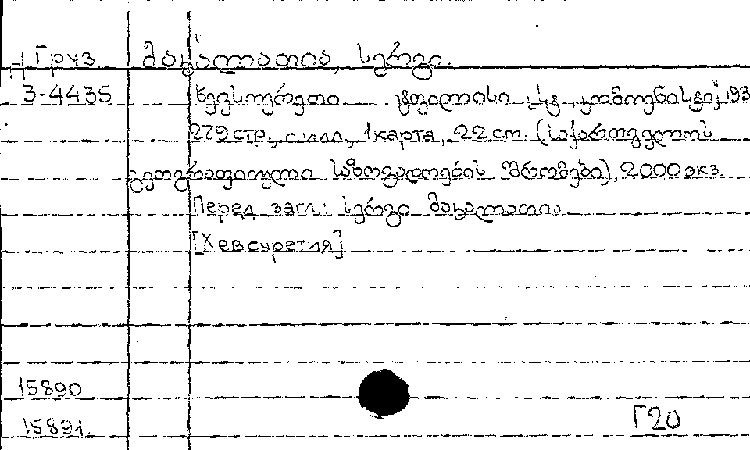 Груз მაკალათია, სერგი.
3-4435 ხევსურეთი ტფილისი კომუნისტი, 193
229 стр., с илл., 1 карта, 22 см. (საქართველოს
გეოგრაფიული საზოგადოების შრომები), 2000 экз.
Перед загл: სერგი მაკალათია
[Хевсуретия]
15890
Г20
15891.